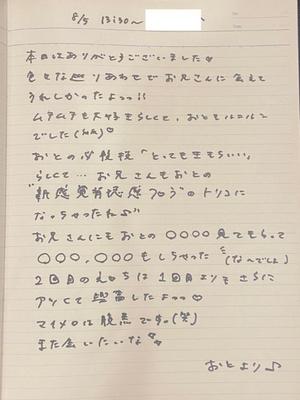 8/5 13:30〜
本日はありがとうございました♡
色々な巡りあわせでお兄さんに会えて
うれしかったよっっ!!
ムアムアも大好きらしくて、おともルンルン
でした(笑)♡
おとの必殺技「とってもきもちいい」
らしくて… お兄さんもおとの
"新感覚有 感フロ"のトリコに
なっちゃったね♪"
お兄さんにもおとの○○○○見てもらって
○○○、○○もしちゃった (な〜でしょ)
2回目の は1回目よりもさらに
アツくて興奮したよっっ♡
マイメロは脱 です。(笑)
また会いたいな
おとより♪